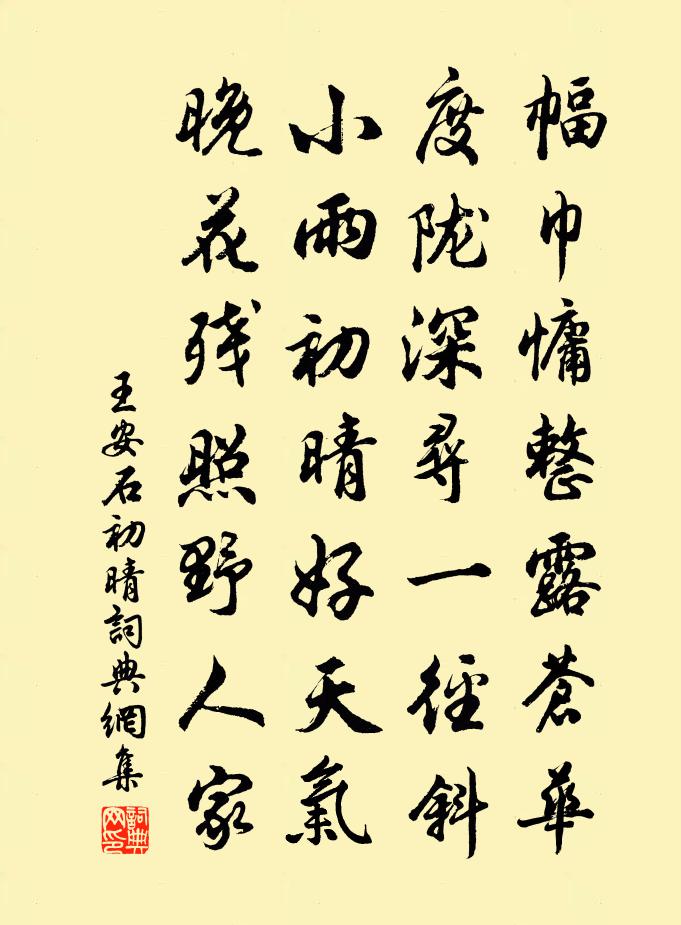 幅巾慵整露蒼華
度陇深尋一徑斜
小雨初晴好天氣
晚花残照野人家
王安石初晴詞典網集
詞典網印